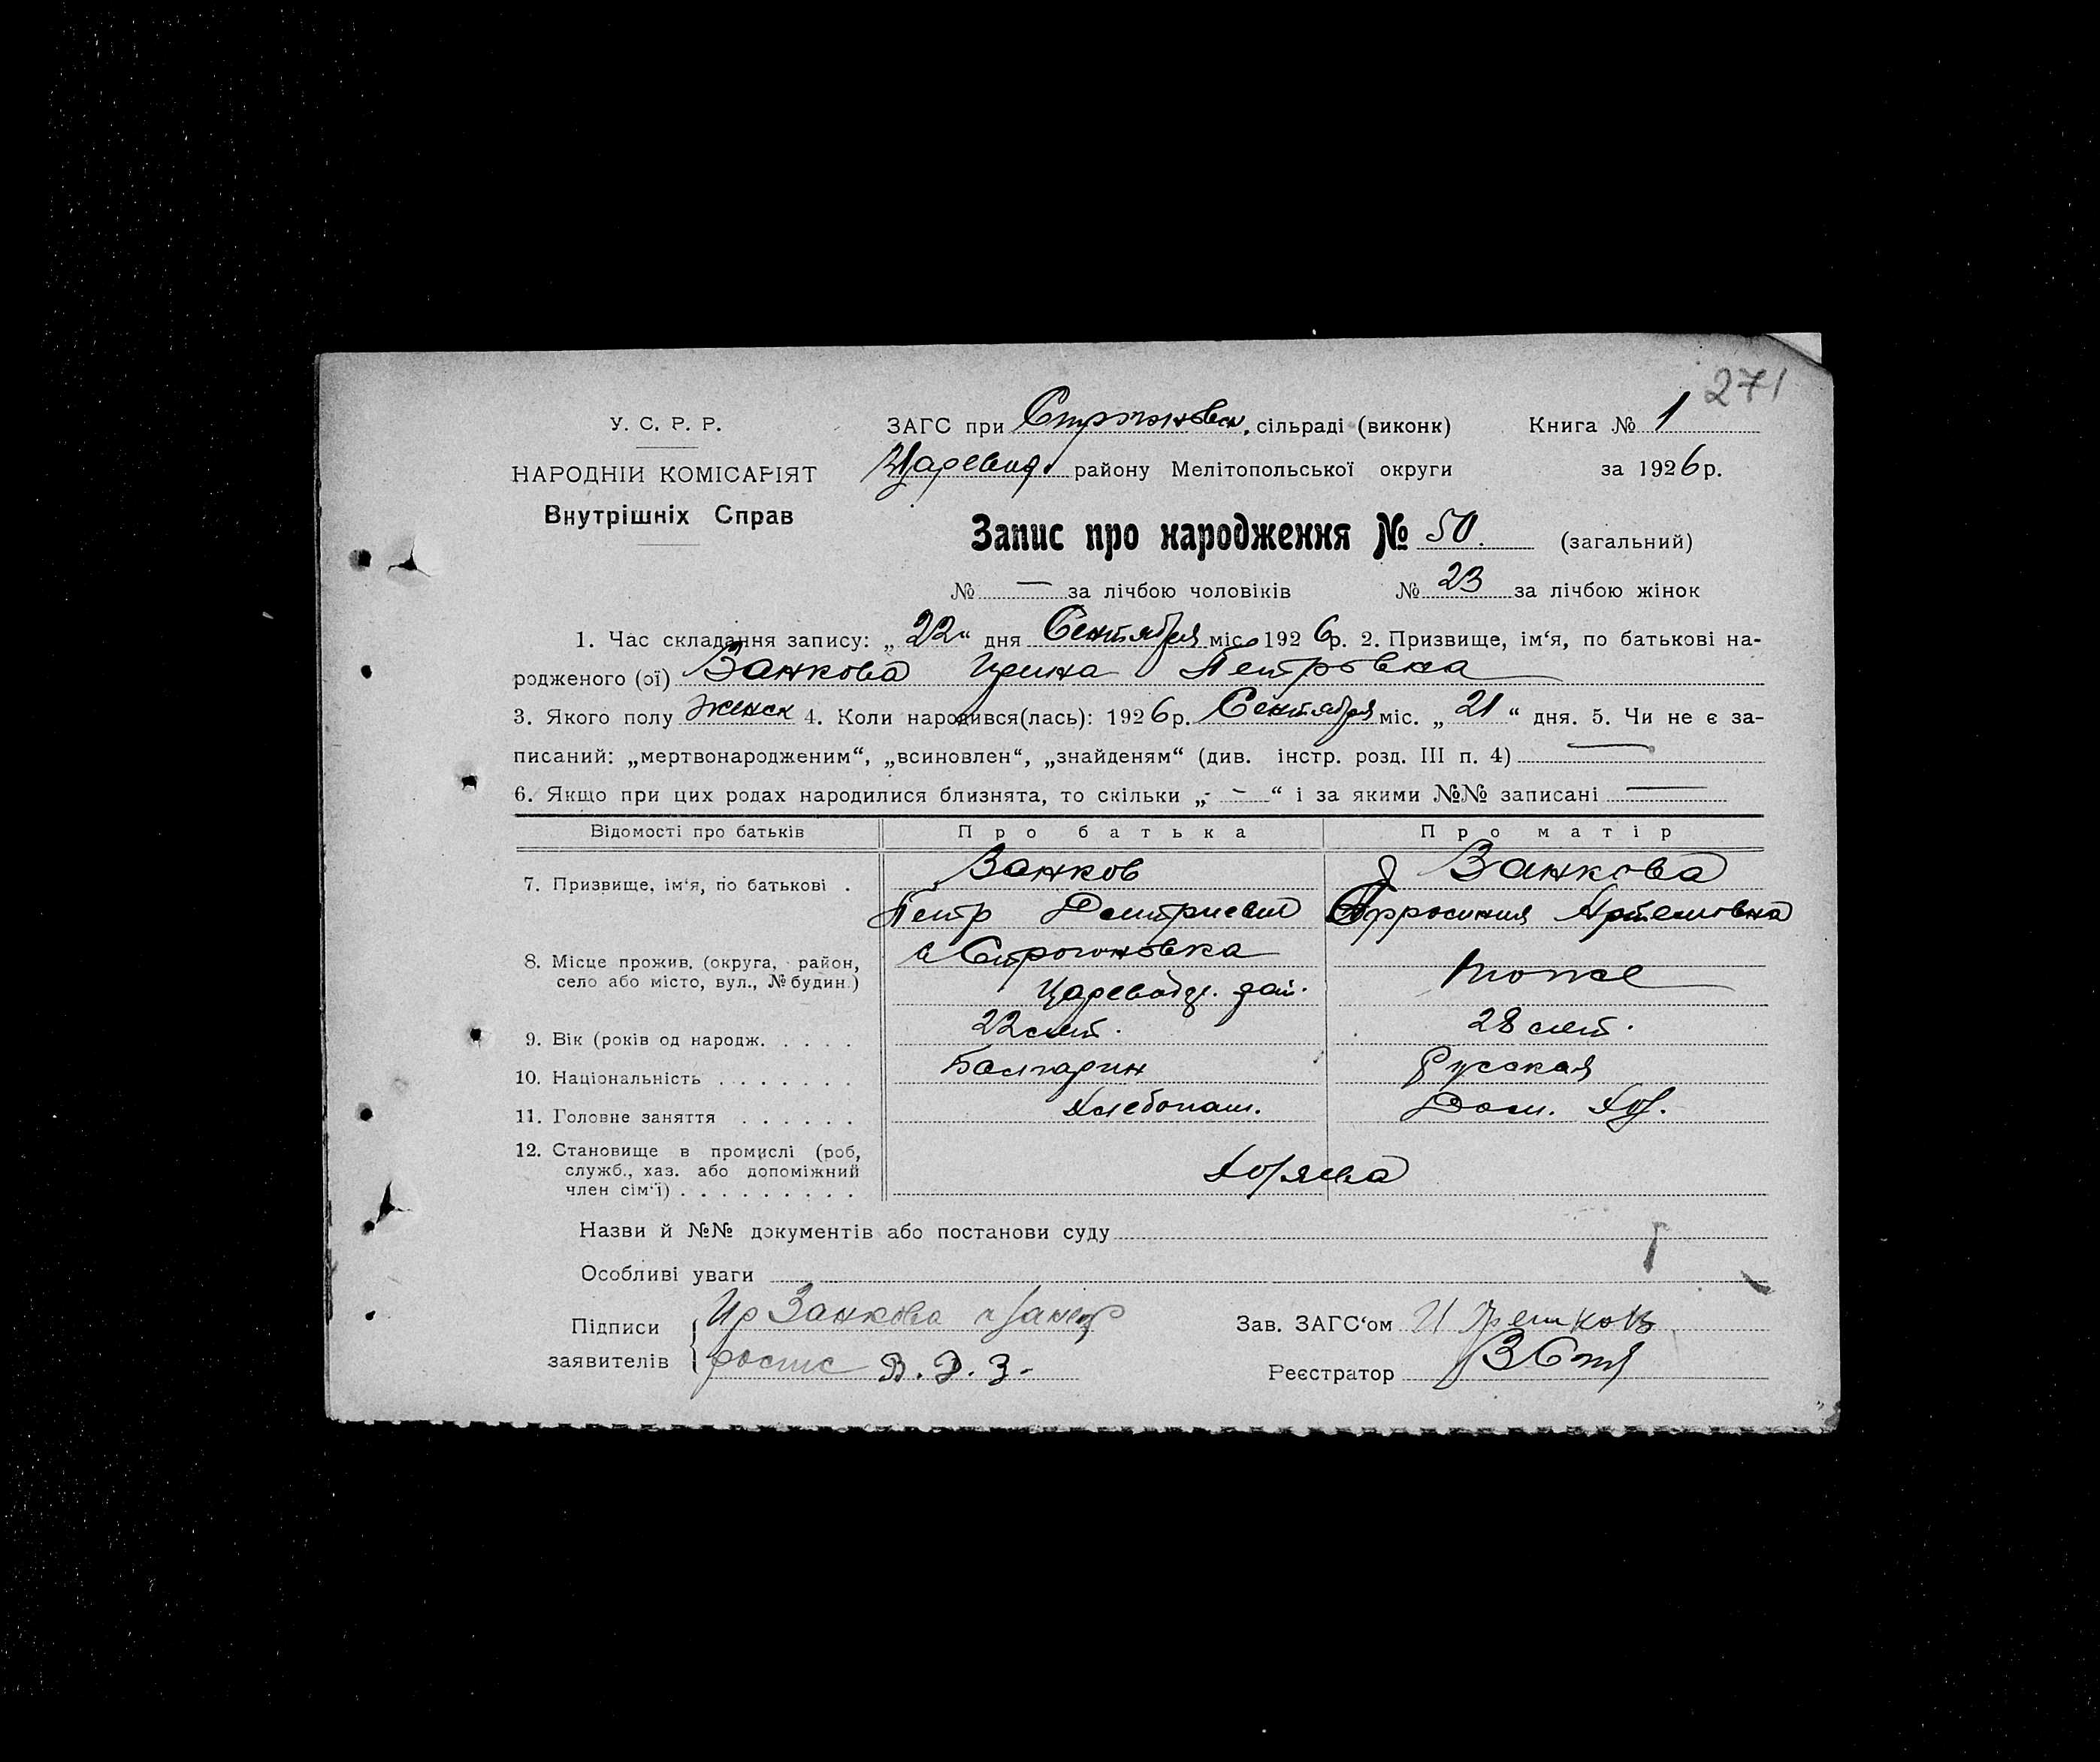 271
У. С. Р. Р.
НАРОДНІЙ КОМІСАРІЯТ
Внутрішніх Справ
ЗАГС при Строгановск. сільраді (виконк) Книга № 1
Царевод. району Мелітопольської округи за 1926 р.
Запис про народження № 50. (загальний)
№ — за лічбою чоловіків № 23 за лічбою жінок
1. Час складання запису: „22“ дня Сентября міс. 1926 р. 2. Призвище, ім‘я, по батькові на-
родженого (ої) Занкова Ирина Петровна
3. Якого полу женск 4. Коли народився(лась): 1926 р. Сентября міс. „21“ дня. 5. Чи не є за-
писаний: „мертвонародженим“, „всиновлен“, „знайденям“ (див. інстр. розд. III п. 4) —
6. Якщо при цих родах народилися близнята, то скільки „- -“ і за якими №№ записані —
Відомості про батьків Про батька Про матір
7. Призвище, ім‘я, по батькові . Занков Занкова
Петр Дмитриевич Ефросиния Артемовна
8. Місце прожив. (округа, район, село або місто, вул., № будин.) с Строгоновка тоже
Цареводр. рай.
9. Вік (років од народж. . . . . 22 лет. 28 лет.
10. Національність . . . . . . . Болгарин Русская
11. Головне заняття . . . . . . Хлебопаш. Дом. Хоз.
12. Становище в промислі (роб, служб., хаз. або допоміжний член сім‘ї) . . . . . . . . . Хозяева
Назви й №№ документів або постанови суду
Особливі уваги
Підписи заявителів Занкова
В. Д. З.
Зав. ЗАГС‘ом
Реєстратор